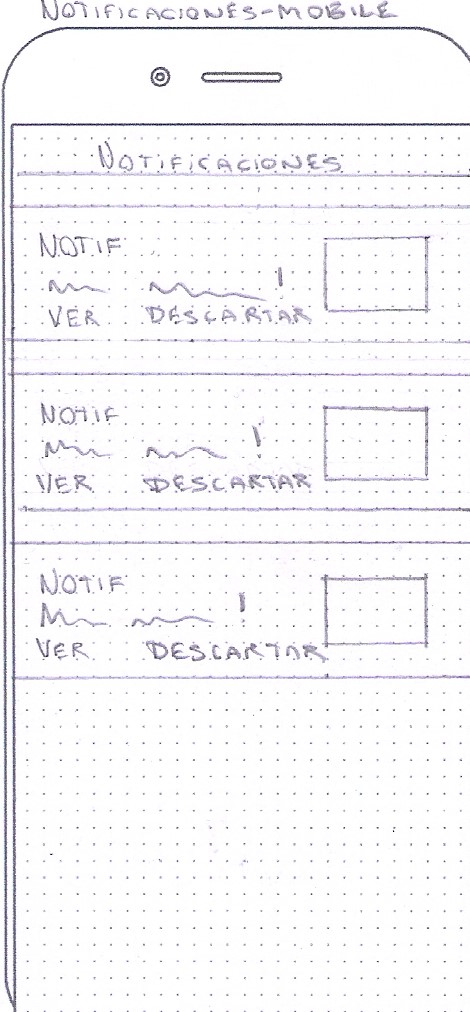 NOTIFICACIONES-MOBILE
NOTIFICACIONES
NOTIF
!
VER DESCARTAR
NOTIF
!
VER DESCARTAR
NOTIF
!
VER DESCARTAR